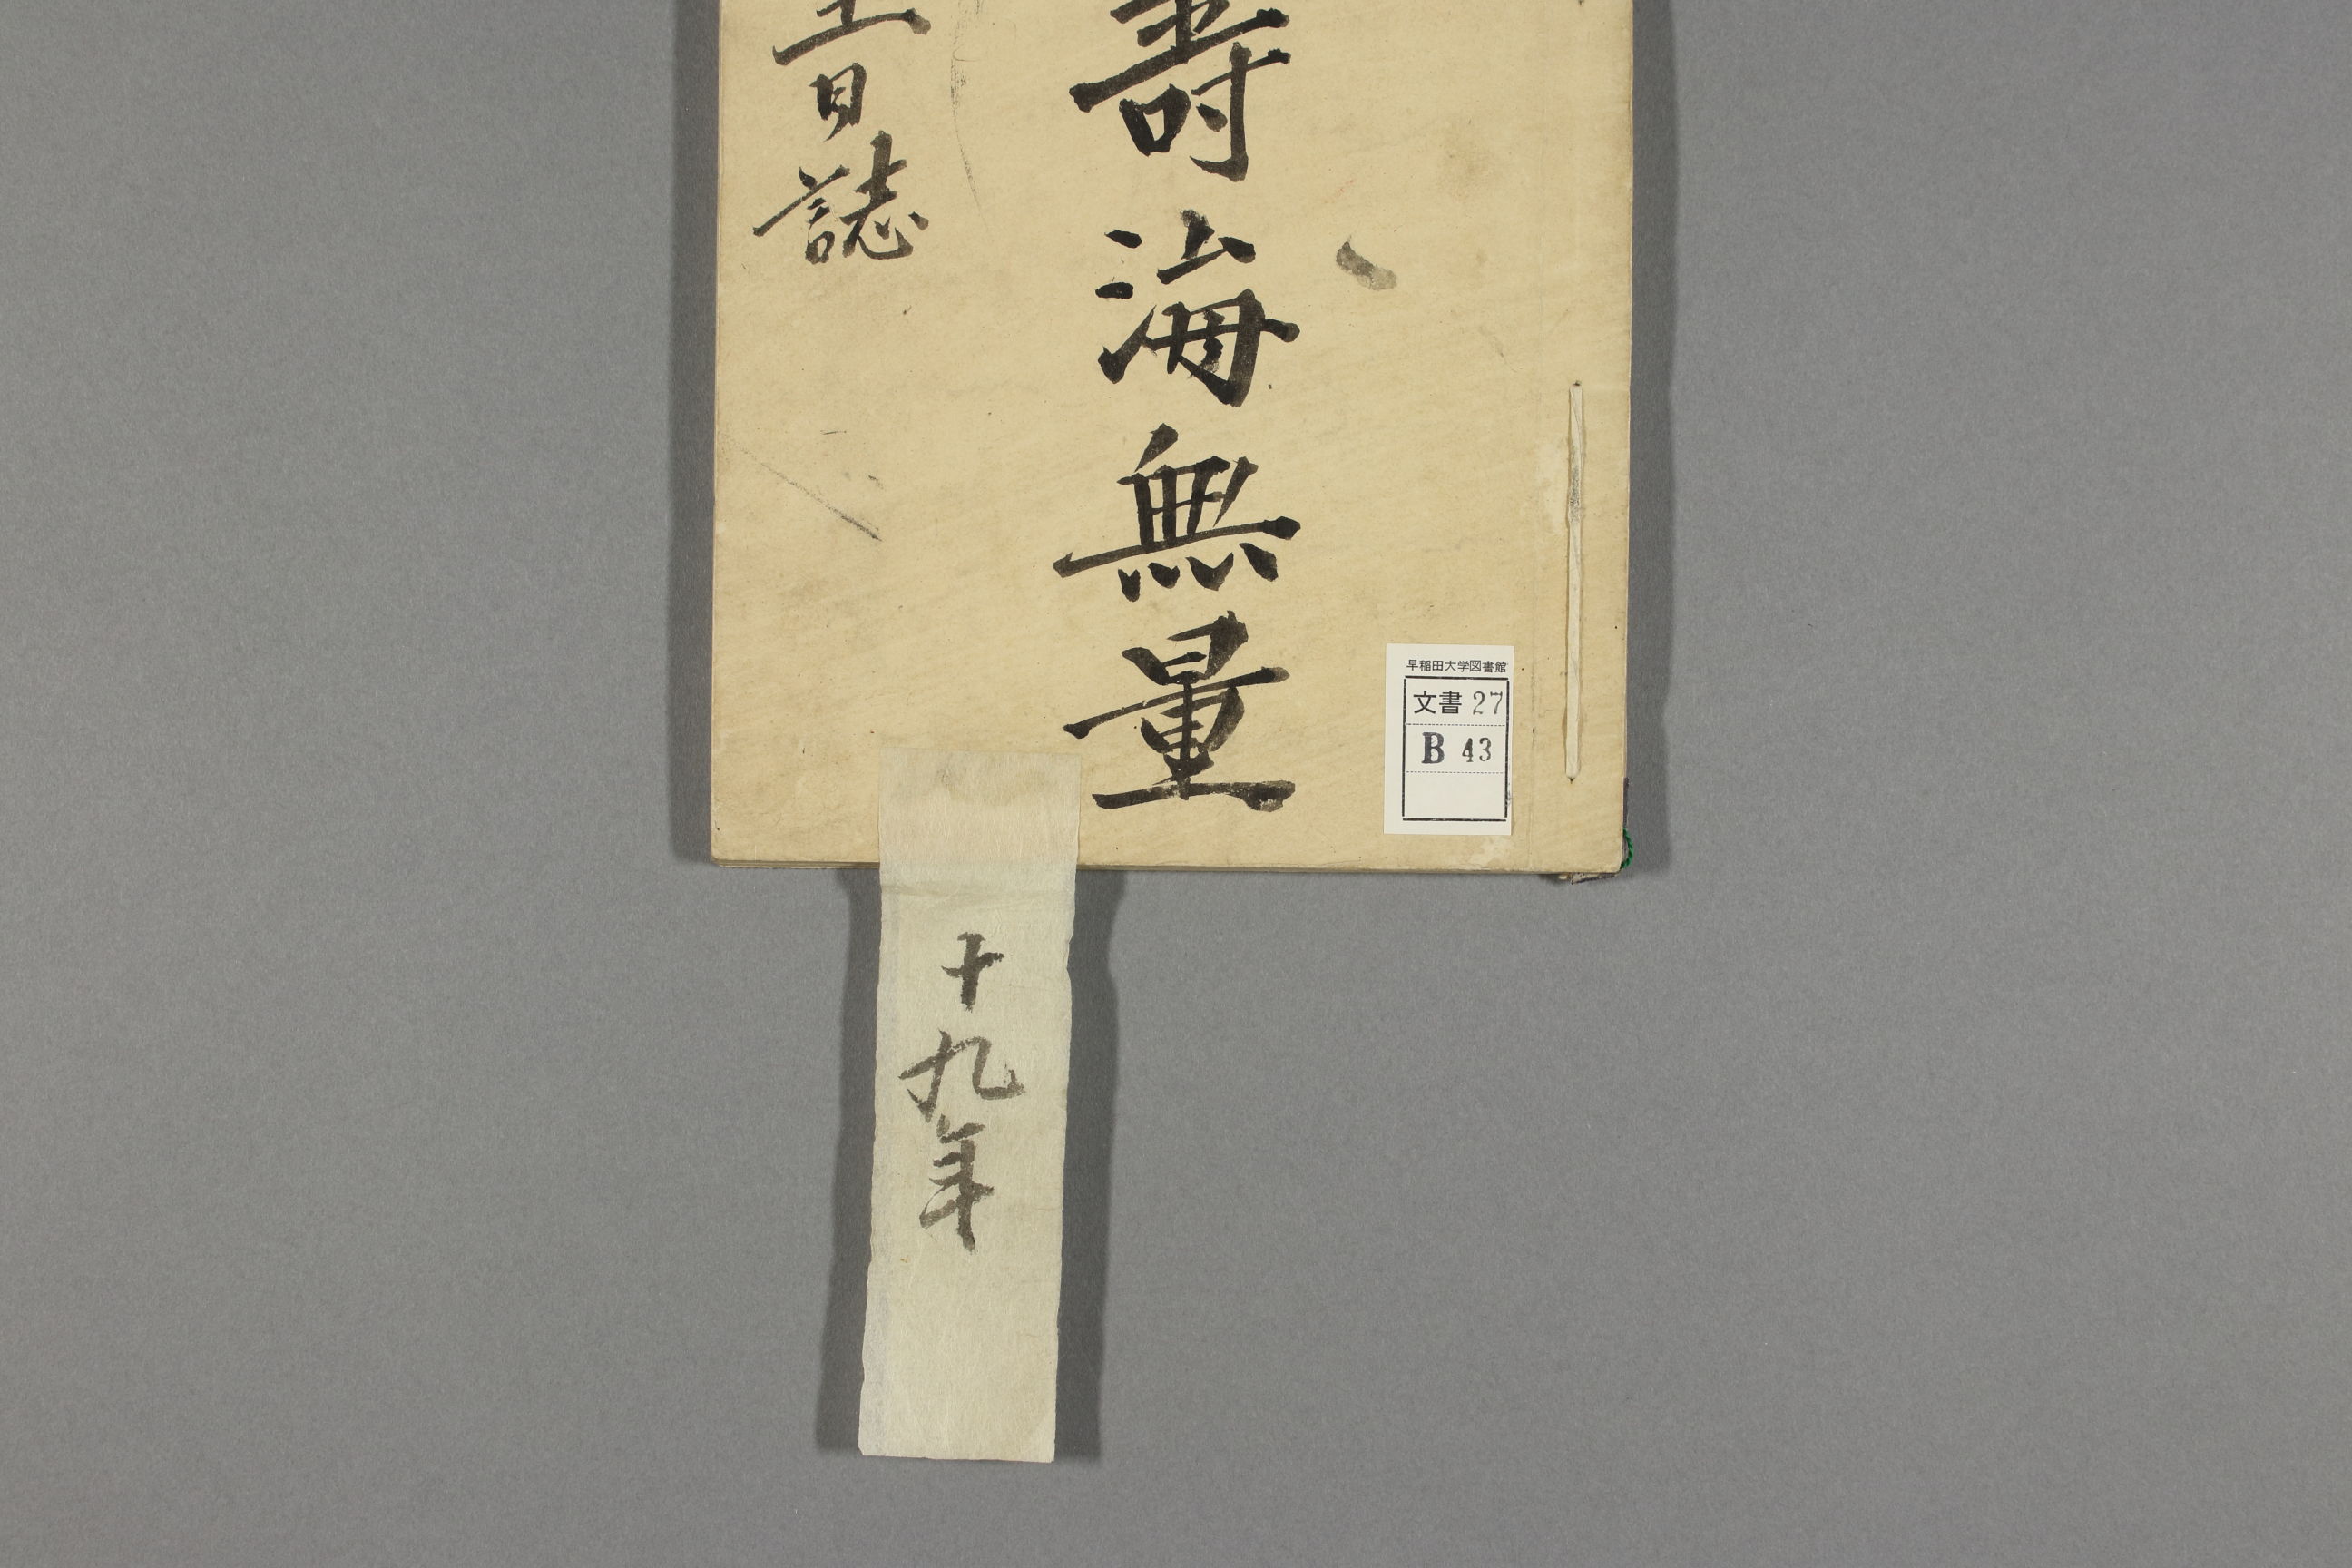 壽海無量
日誌
十九年
早稲田大学図書館
文書 27
B 43